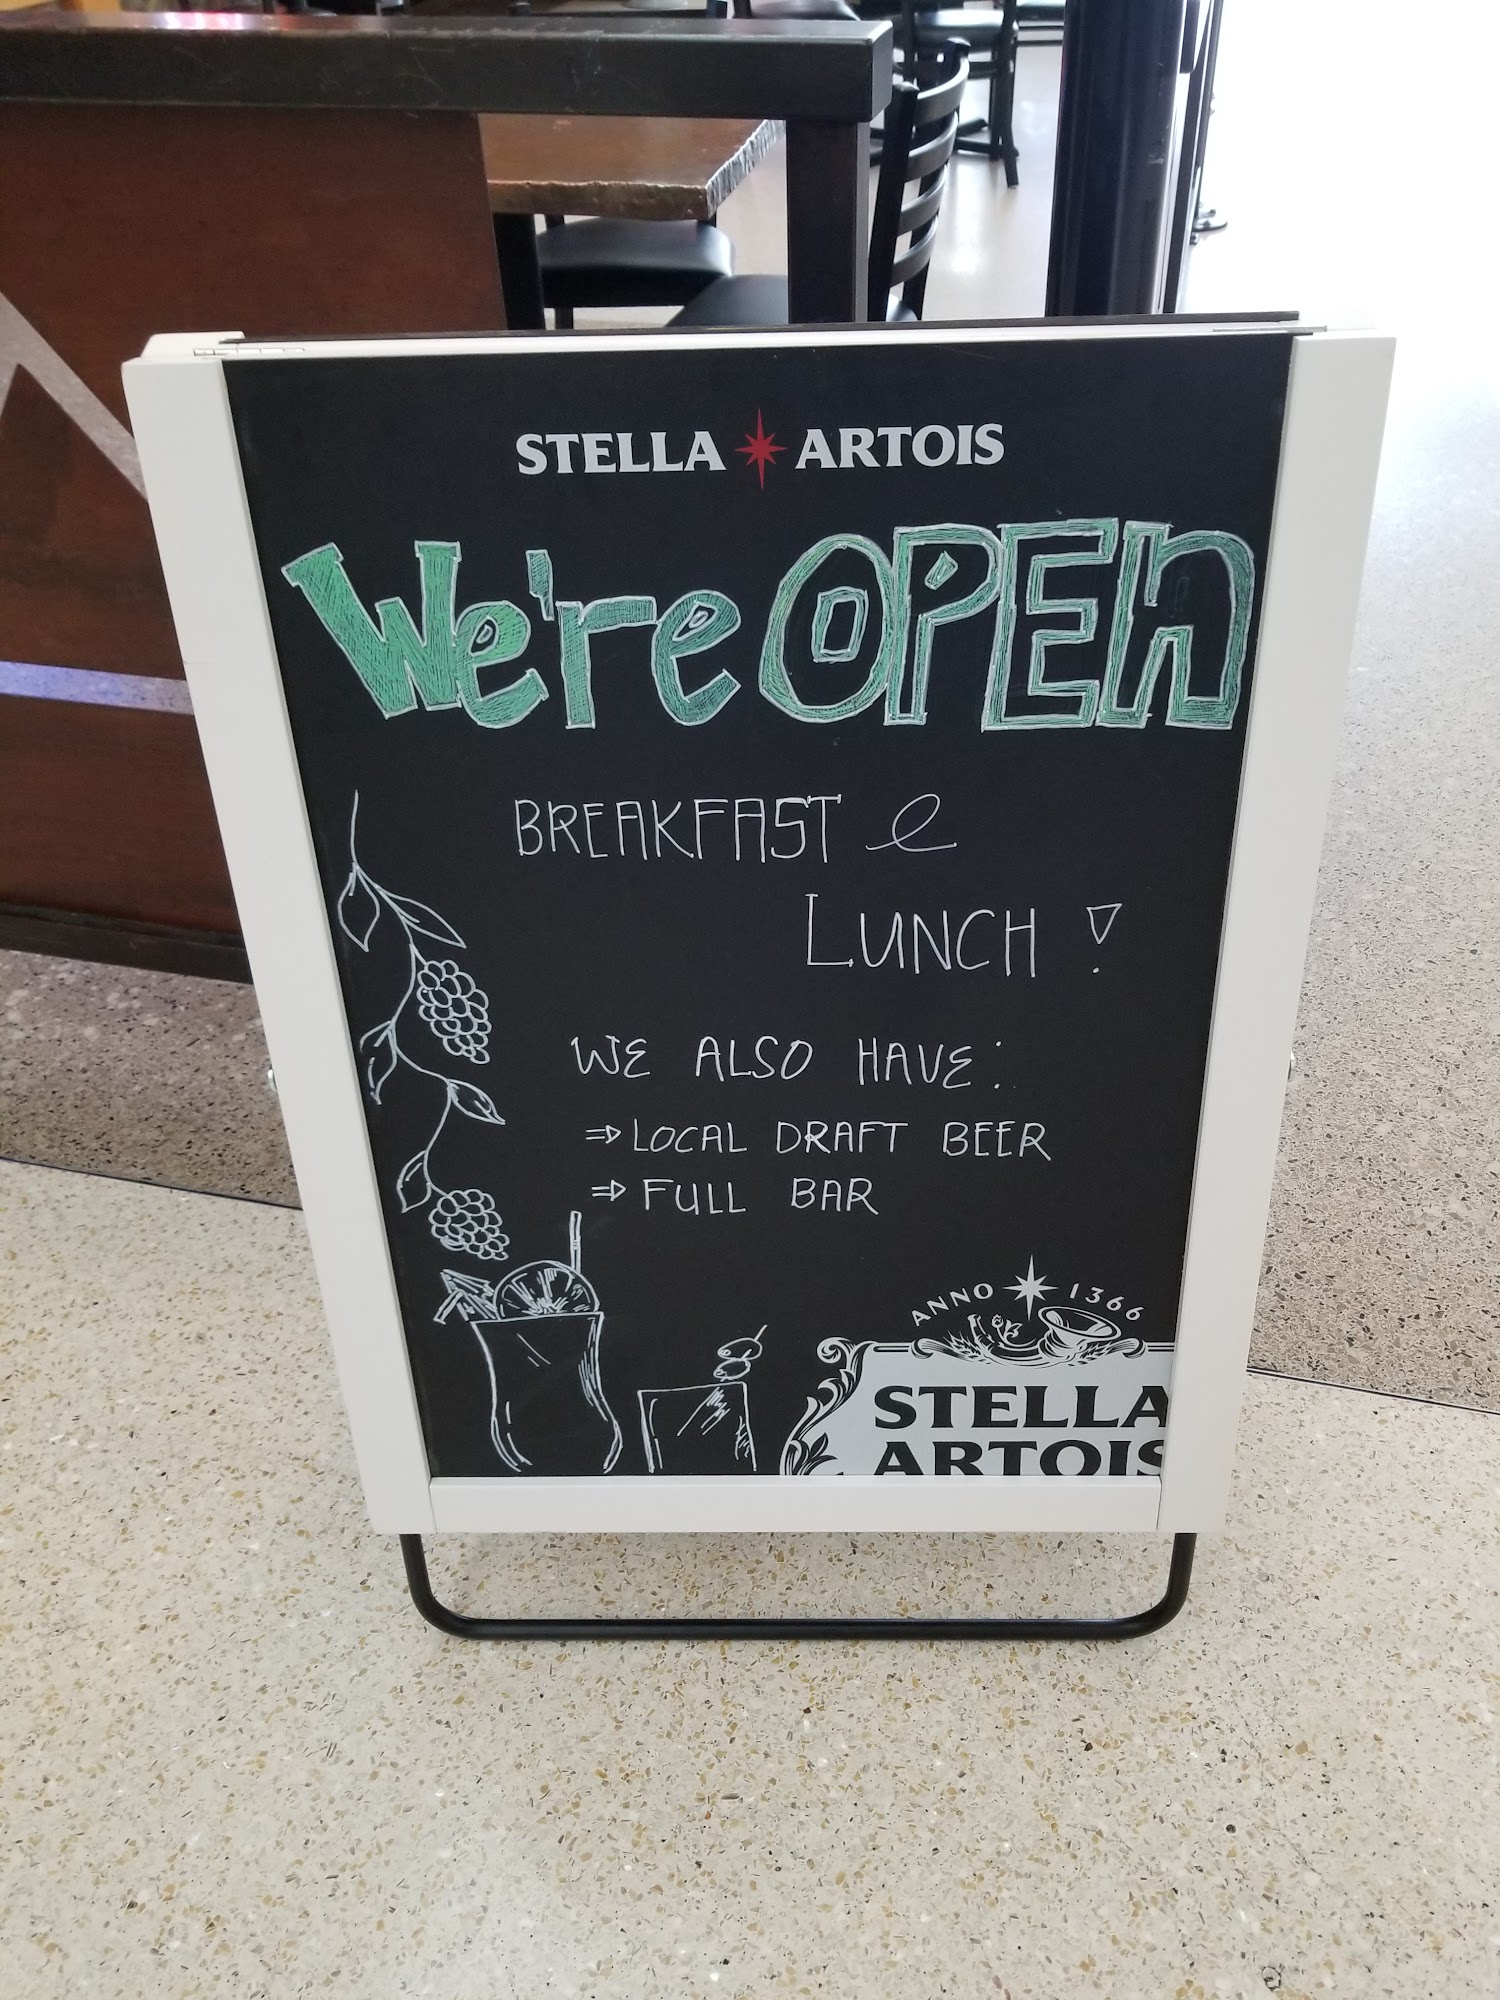 STELLA ARTOIS
We're OPEn
BREAKFAST &
LUNCH !
WE ALSO HAVE:
⇒ LOCAL DRAFT BEER
⇒ FULL BAR
ANNO 1366
STELLA
ARTOIS